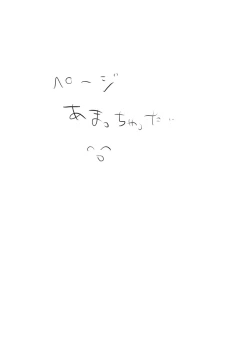 ページ
あまっちゃった‥